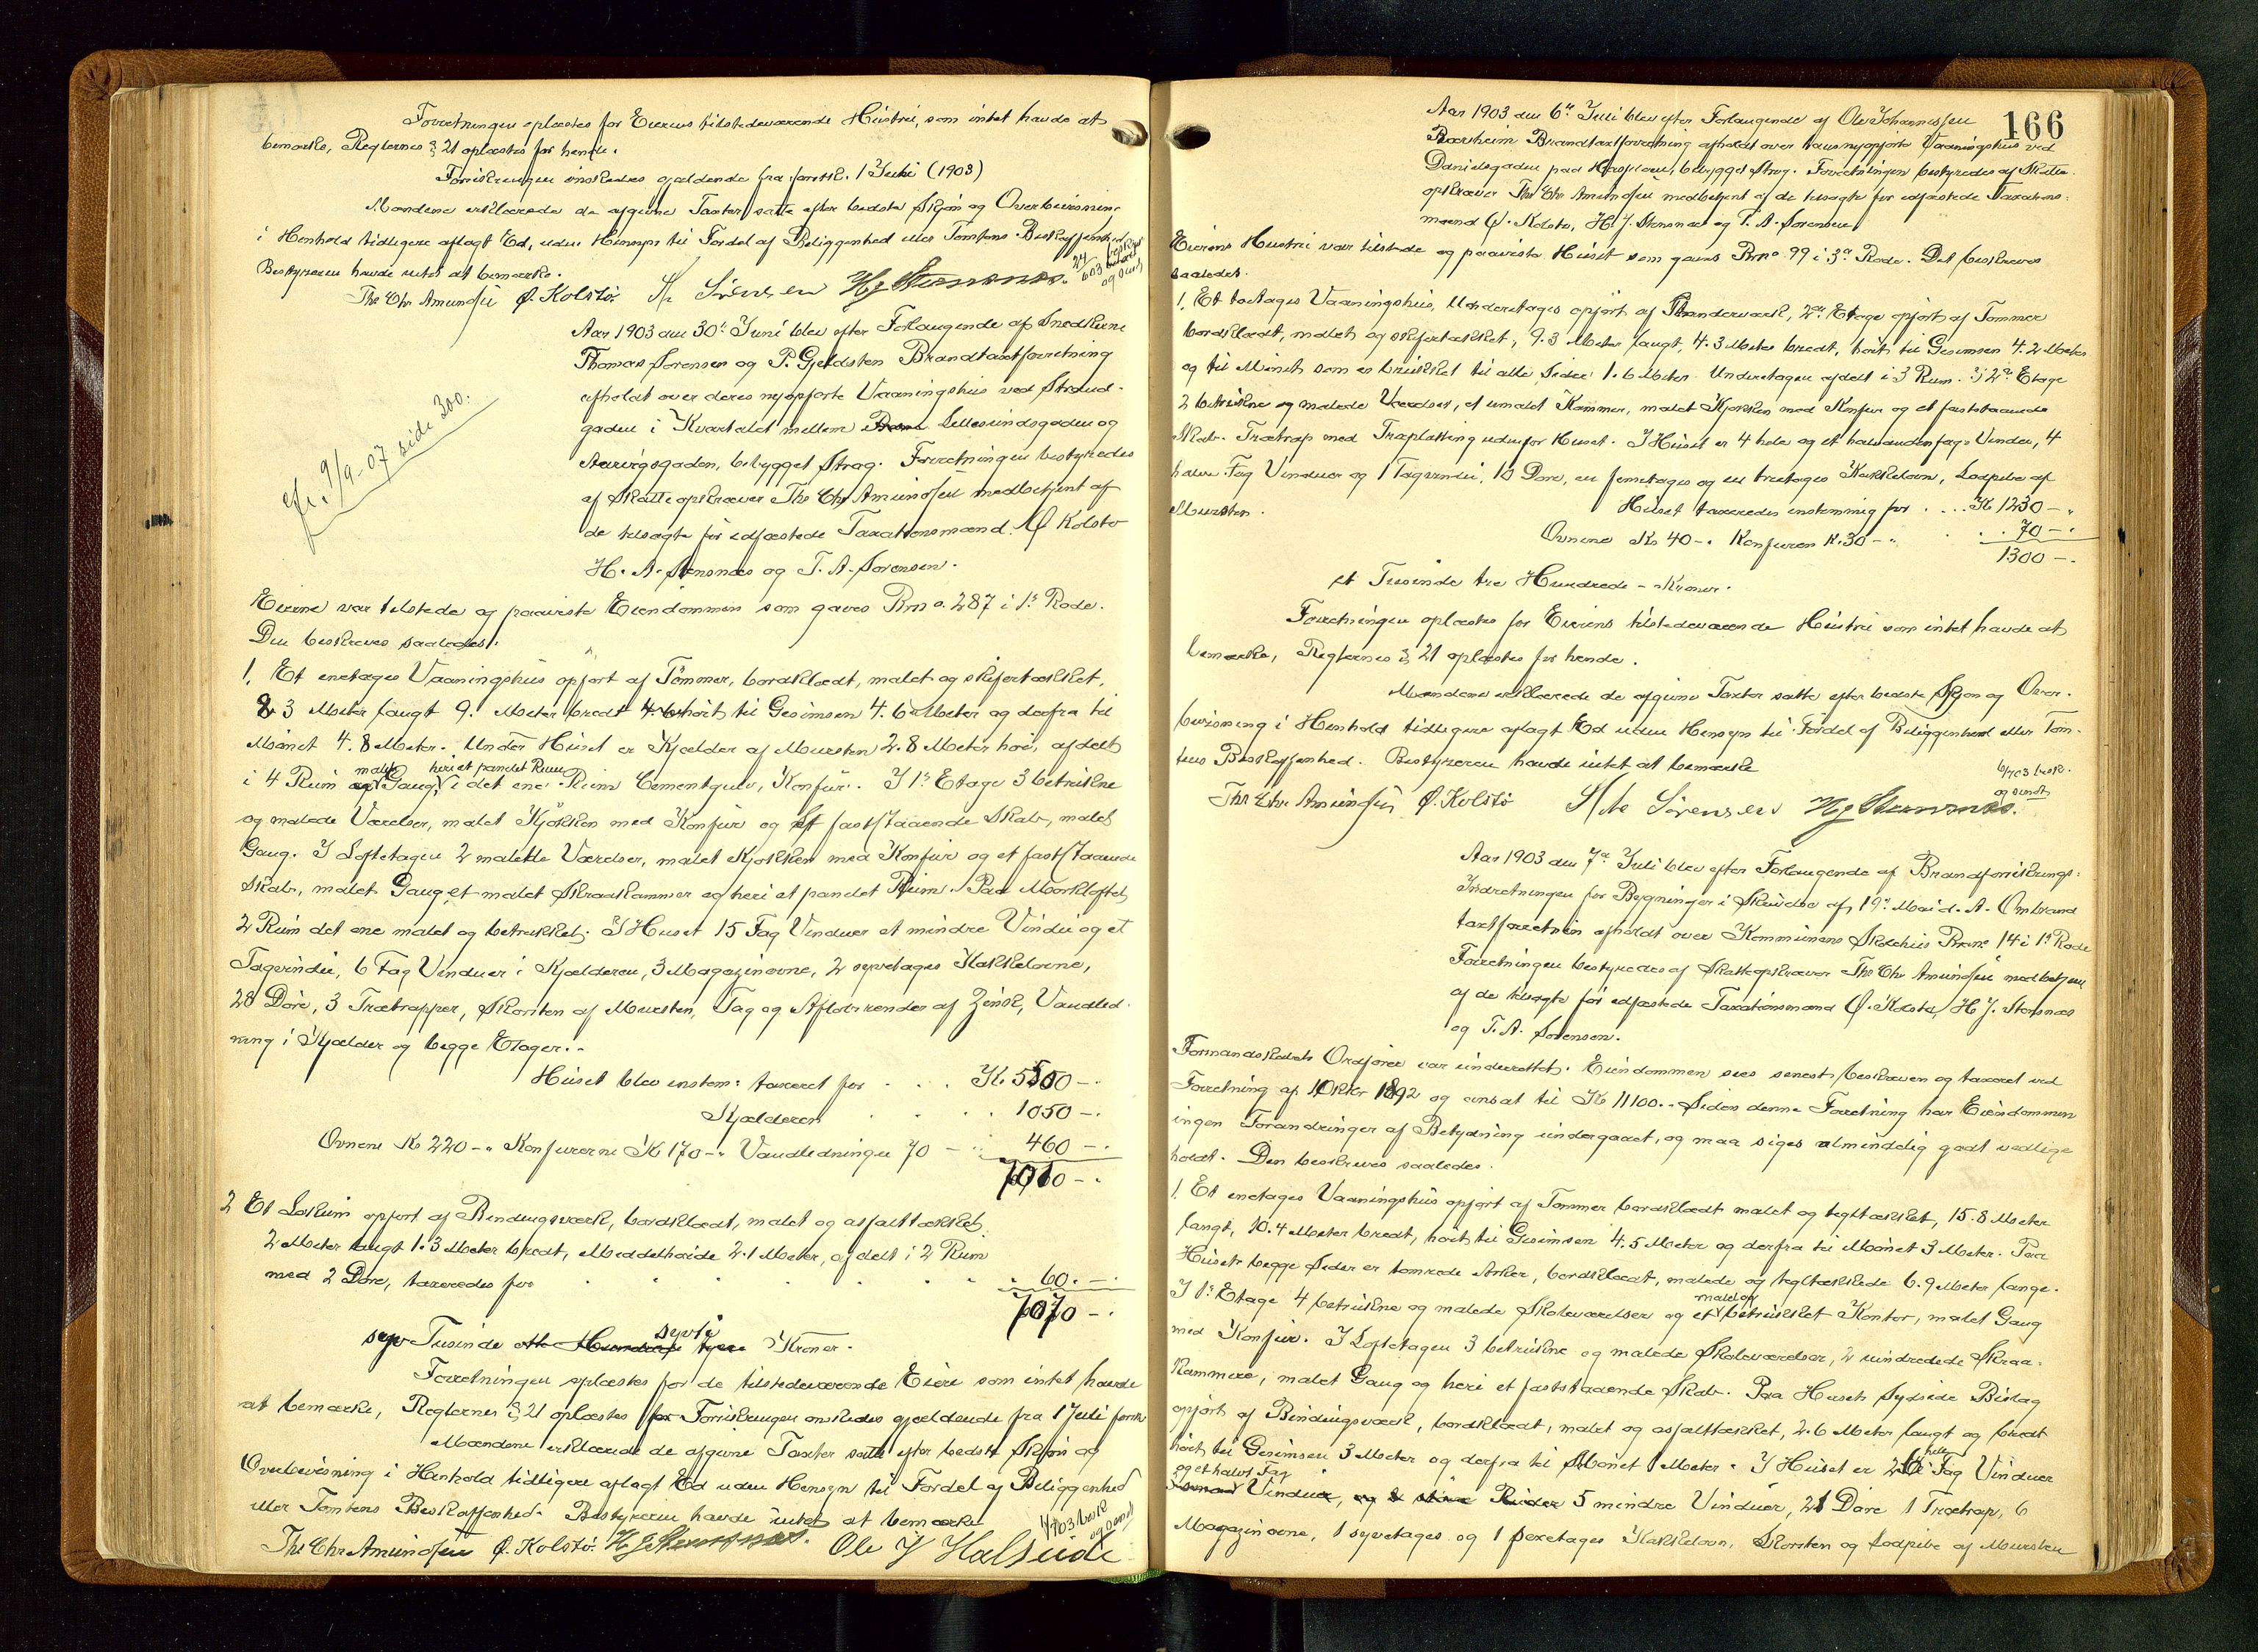 Forretningen oplæstes for Eierens tilstedeværende Hustru, som intet havde at
bemærke, Reglernes § 21 oplæstes for hende.
Forsikringen ønskedes gjældende fra førstk. 1 Juli (1903)
Mændene erklærede de afgivne Taxter satte efter bedste Skjøn og Overbevisning
i Henhold tidligere aflagt Ed, uden Hensyn til Fordel af Beliggenhed eller Tomtens Beskaffenhed
Bestyreren havde intet at bemærke.
Ths Chr Amundsen Ø. Kolstø. Sørensen HJ Stensnæs.
Aar 1903 den 30te Juni blev efter Forlangende af Snedkerne
Thomas Sørensen og P. Gjeldsten Brandtaxtforretning
afholdt over deres nyopførte Vaaningshus ved Strand-
gaden i Kvartalet mellem Lillesundsgaden og
Aarvigsgaden, bebygget Strøg. Forretningen bestyredes
af Skatteopkræver Ths Chr Amundsen medbetjent af
de tilsagte før edfæstede Taxationsmænd. Ø Kolstø
H. A. Stensnæs og T. A. Sørensen.
cfr. 9/9-07 side 300.
Eierne var tilstede og paaviste Eiendommen som gaves Brn o. 287 i 1s Rode.
Den beskreves saaledes:
1. Et enetages Vaaningshus opført af Tømmer, bordklædt, malet og skifertækket,
8.3 Meter langt 9. Meter bredt høit til Gesimsen 4.6 Meter og derfra til
Mønet 4.8 Meter. Under Huset er Kjælder af Mursten 2.8 Meter høi, afdelt
malet heri et pandet Rum
i 4 Rum og Gang, i det ene Rum Cementgulv, Konfur. I 1s Etage 3 betrukne
og malede Værelser, malet Kjøkken med Konfur og et faststaaende Skab, malet
Gang. I Loftetagen 2 malede Værelser, malet Kjøkken med Konfur og et faststaaende
Skab, malet Gang et malet Skraakammer og heri et pandet Rum. Paa Mørkloftet
2 Rum det ene malet og betrukket. I Huset 15 Fag Vinduer et mindre Vindu og et
Tagvindu, 6 Fag Vinduer i Kjælderen, 3 Magazinovne, 2 syvetages Kakkelovne,
28 Døre, 3 Trætrapper, Skorsten af Mursten, Tag og Afløbsrender af Zink, Vandled-
ning i Kjælder og begge Etager.
Huset blev enstem: taxeret for . . . K. 5500 -.
Kjælderen . . . . 1050 -.
Ovnene Kr 220 -. Konfurerne K 170 -. Vandledningen 70 - 460 -.
7010 -.
2 Et Lokum opført af Bindingsværk, bordklædt, malet og asfalttækket
2 Meter langt 1.3 Meter bredt, Middelhøide 2.1 Meter, afdelt i 2 Rum
med 2 Døre, taxeredes for . . . . . . 60. -.
7070 -.
sytti
syv Tusinde Kroner.
Forretningen oplæstes for de tilstedeværende Eiere som intet havde
at bemærke, Reglernes § 21 oplæstes for Forsikringen ønskedes gjældende fra 1 Juli førstk
Mændene erklærede de afgivne Taxter satte efter bedste Skjøn og
Overbevisning i Henhold tidligere aflagt Ed uden Hensyn til Fordel af Beliggenhed
eller Tomtens Beskaffenhed. Bestyreren havde intet at bemærke
Ths Chr Amundsen Ø. Kolstø. HJ Stensnæs. Ole
166
Aar 1903 den 6te Juli blev efter Forlangende af Ole Johannessen
Brandtaxtforretning afholdt over hans nyopførte Vaaningshus ved
Danielsgaden paa bebygget Strøg. Forretningen bestyredes af Skatte-
opkræver Ths Chr Amundsen medbetjent af de tilsagte før edfæstede Taxations-
mænd Ø. Kolstø, H. J. Stensnæs og T. A. Sørensen
Eierens Hustru var tilstede og paaviste Huset som gaves Brno 99 i 3die Rode. Det beskreves
saaledes.
1. Et toetages Vaaningshus, Underetagen opført af Standerværk, 2den Etage opført af Tømmer
bordklædt, malet og skifertækket, 9.3 Meter langt, 4.3 Meter bredt, høit til Gesimsen 4.2 Meter
og til Mønet som er brukket til alle Sider 1.6 Meter. Underetagen afdelt i 3 Rum. I 2den Etage
2 betrukne og malede Værelser, et umalet Kammer, malet Kjøkken med Konfur og et faststaaende
Skab. Trætrap med Traplatting udenfor Huset. I Huset er 4 hele og et halvandenfags Vindu, 4
halve Fag Vinduer og 1 Tagvindu, 10 Døre, en femetages og en treetages Kakkelovn, Lodpibe af
Mursten.
Huset taxeredes enstemmig for . . . . K 1230 -.
Ovnene Kr 40 -. Konfuren K. 30 -. . . 70 -.
1300 -.
et Tusinde tre Hundrede - Kroner.
Forretningen oplæstes for Eierens tilstedeværende Hustru som intet havde at
bemærke, Reglernes § 21 oplæstes for hende.
Mændene erklærede de afgivne Taxter satte efter bedste Skjøn og Over-
bevisning i Henhold tidligere aflagt Ed uden Hensyn til Fordel af Beliggenhed eller Tom-
tens Beskaffenhed. Bestyreren havde intet at bemærke
Ths Chr Amundsen Ø. Kolstø Sørensen HJ Stensnæs.
Aar 1903 den 7de Juli blev efter Forlangende af Brandforsikrings-
Indretningen for Bygninger i Skrivelse af 19de Mai d. A. Ombrand
taxtforretnin afholdt over Kommunens Skolehus Brno 14 i 1s Rode
Forretningen bestyredes af Skatteopkræver Ths Chr Amundsen medbetjent
af de tilsagte før edfæstede Taxationsmænd Ø. Kolstø, H J. Stensnæs
og T. A. Sørensen.
Formandskabets Ordfører var underrettet. Eiendommen sees senest beskreven og taxeret ved
Forretning af 1 Oktbr 1892 og ansat til Kr 11100. - Siden denne Forretning har Eiendommen
ingen Forandringer af Betydning undergaaet, og maa siges almindelig godt vedlige-
holdt. Den beskreves saaledes.
1. Et enetages Vaaningshus opført af Tømmer bordklædt malet og tegltækket, 15.8 Meter
langt, 10.4 Meter bredt, høit til Gesimsen 4.5 Meter og derfra til Mønet 3 Meter. Paa
Husets begge Sider er tømrede Arker, bordklædt, malede og tegltækkede 6.9 Meter lange.
malet og
I 1s Etage 4 betrukne og malede Skoleværelser og et betrukket Kontor, malet Gang
med Konfur. I Loftetagen 3 betrukne og malede Skoleværelser, 2 uindredede Skraa-
kammere, malet Gang og heri et faststaaende Skab. Paa Husets Sydside Bislag
opført af Bindingsværk, bordklædt, malet og asfalttækket, 2.6 Meter langt og bredt
høit til Gesimsen 3 Meter og derfra til Mønet 1 Meter. I Huset er hele Fag Vinduer
og et halvt Fag
Vindu, 5 mindre Vinduer, 21 Døre 1 Trætrap, 6
Magazinovne, 1 syvetages og 1 sexetages Kakkelovn, Skorsten og Lodpibe af Mursten